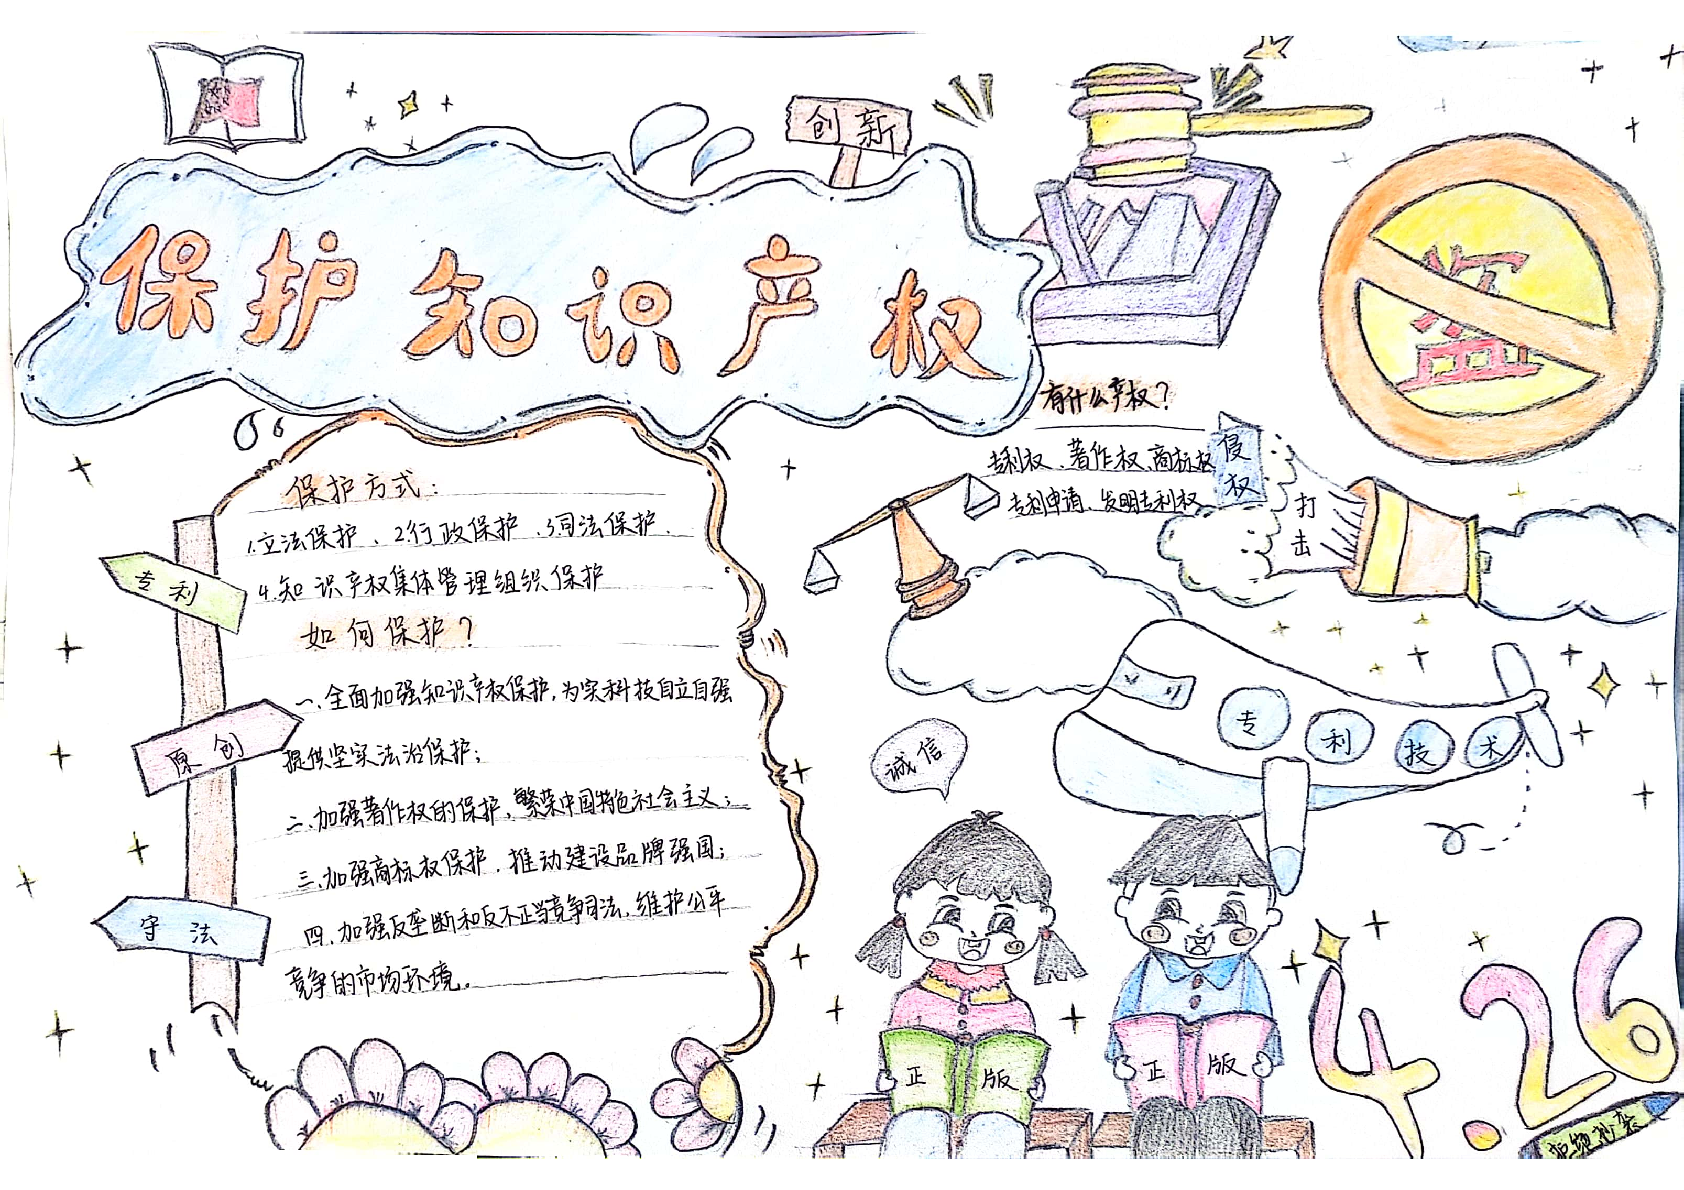 创新
保护知识产权
盗
有什么产权？
专利权、著作权、商标权
专利申请、发明专利权
侵权
打击
保护方式：
1.立法保护、2.行政保护、3.司法保护、
4.知识产权集体管理组织保护
如何保护？
一、全面加强知识产权保护，为实科技自立自强
提供坚实法治保护；
二、加强著作权的保护，繁荣中国特色社会主义；
三、加强商标权保护，推动建设品牌强国；
四、加强反垄断和反不正当竞争司法，维护公平
竞争的市场环境。
专利
原创
守法
专利技术
诚信
正版
正版
4.26
拒绝抄袭